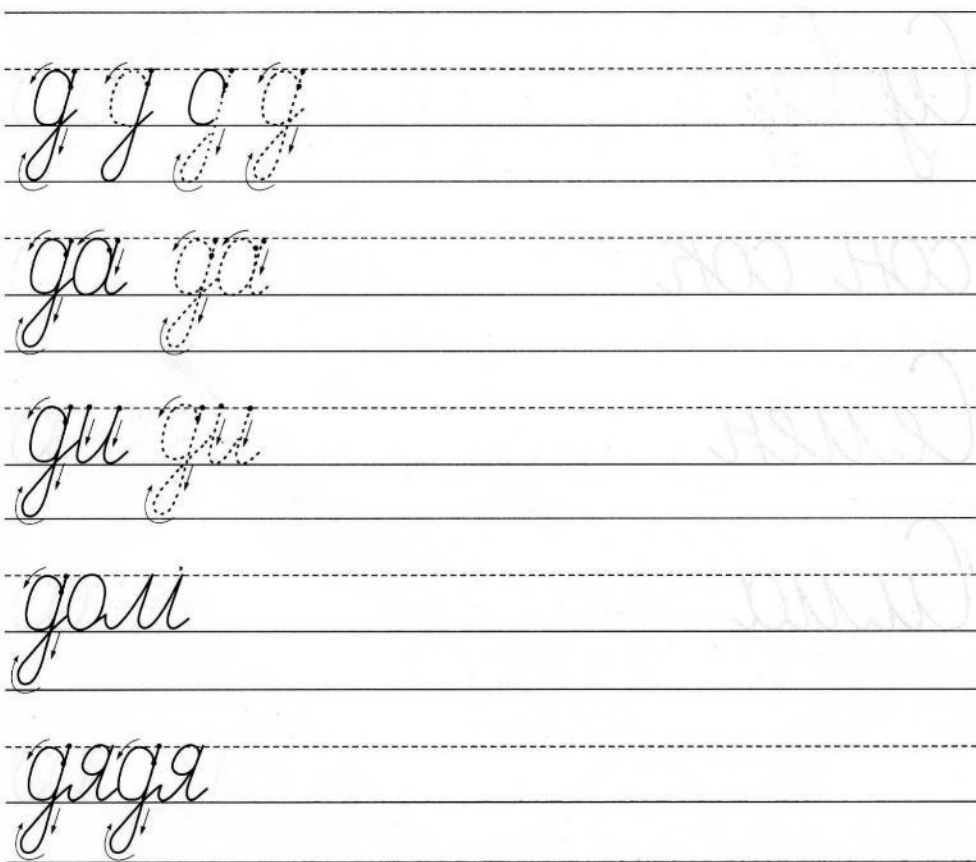 д д д д
да да
ди ди
дом
дядя